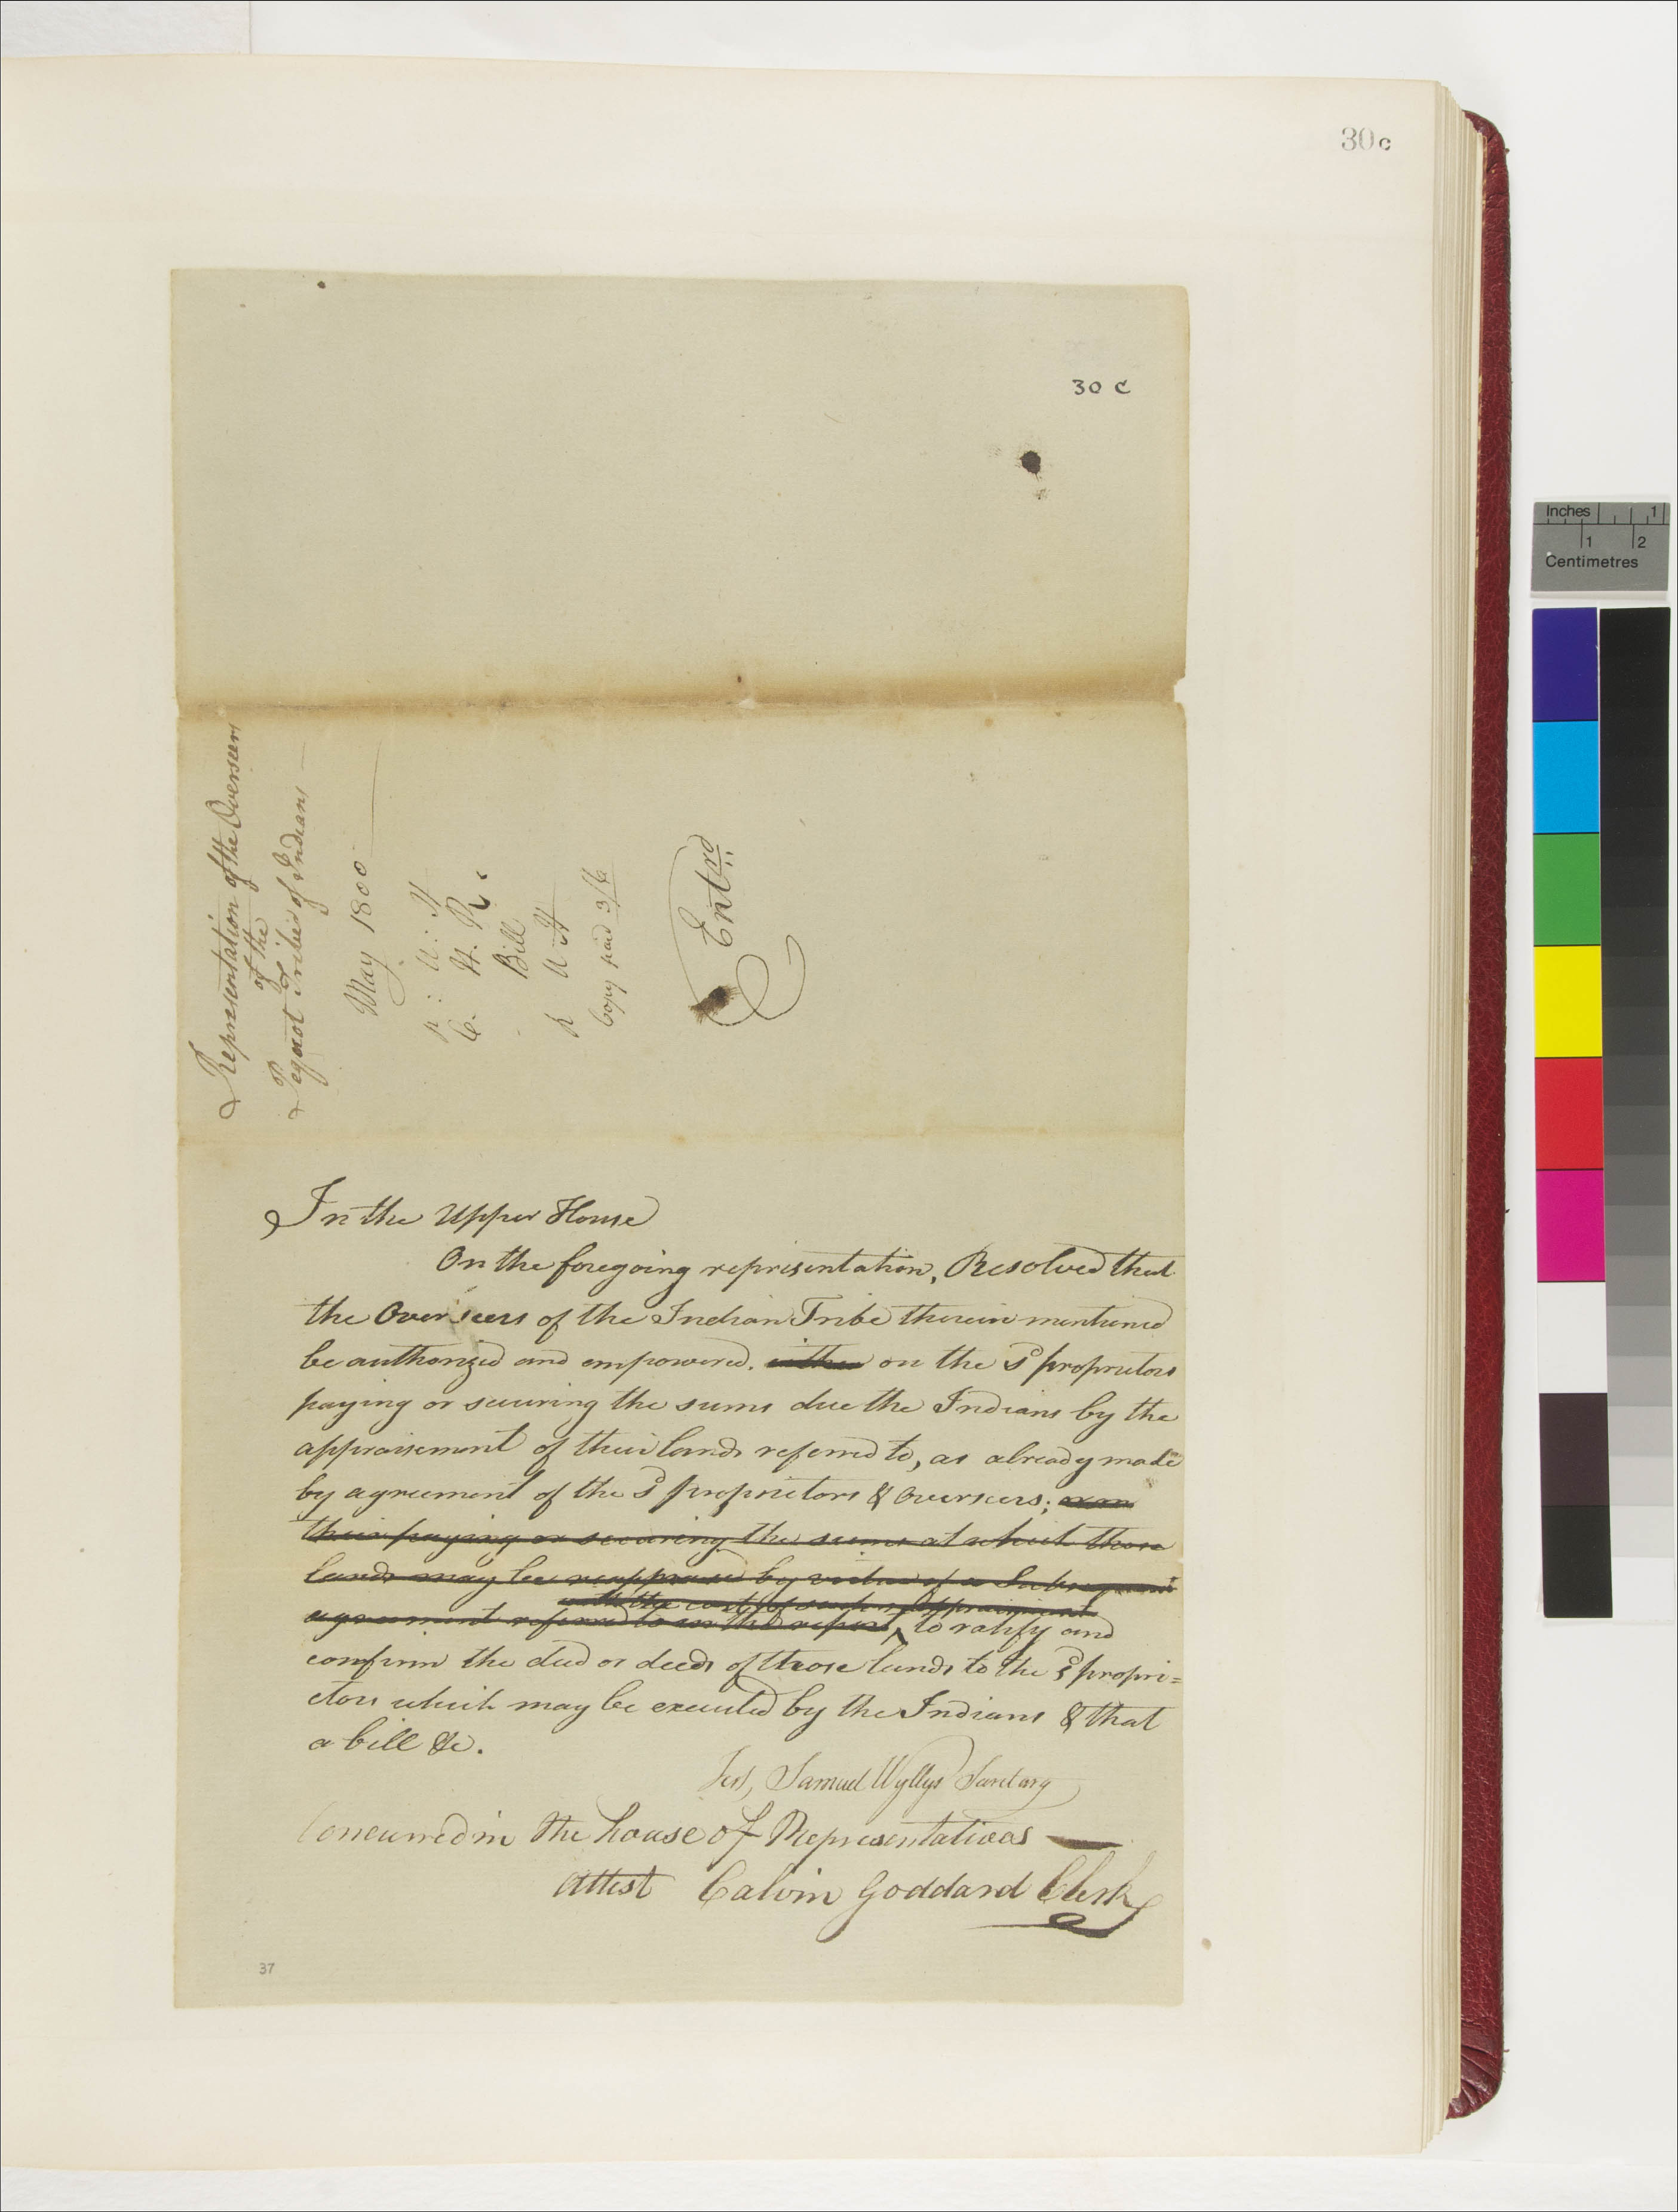 30c
30 C
Representation of the Overseers
of the
Pequot Tribes of Indians
May 1800
P : U : H
C. H. R
Bill
R U H
Copy paid 3/6
Entrd
In the Upper House
On the foregoing representation, Resolved that
the Overseers of the Indian Tribe therein mentioned
be authorized and empowered. either on the sd proprietors
paying or securing the sums due the Indians by the
appraisement of their lands referred to, as already made
by agreement of the sd proprietors & Overseers;
their paying or securing the sums at which those
lands may be reappraised by virtue of a Subsequent
with the cost of such reappraisement
agreement referred to in the report, to ratify and
confirm the deed or deeds of those lands to the sd propri=
etors which may be executed by the Indians & that
a bill &c.
Test, Samuel Wyllys Secretary
Concurred in the house of Representatives
Attest Calvin Goddard Clerk
37
Inches 1
1 2
Centimetres